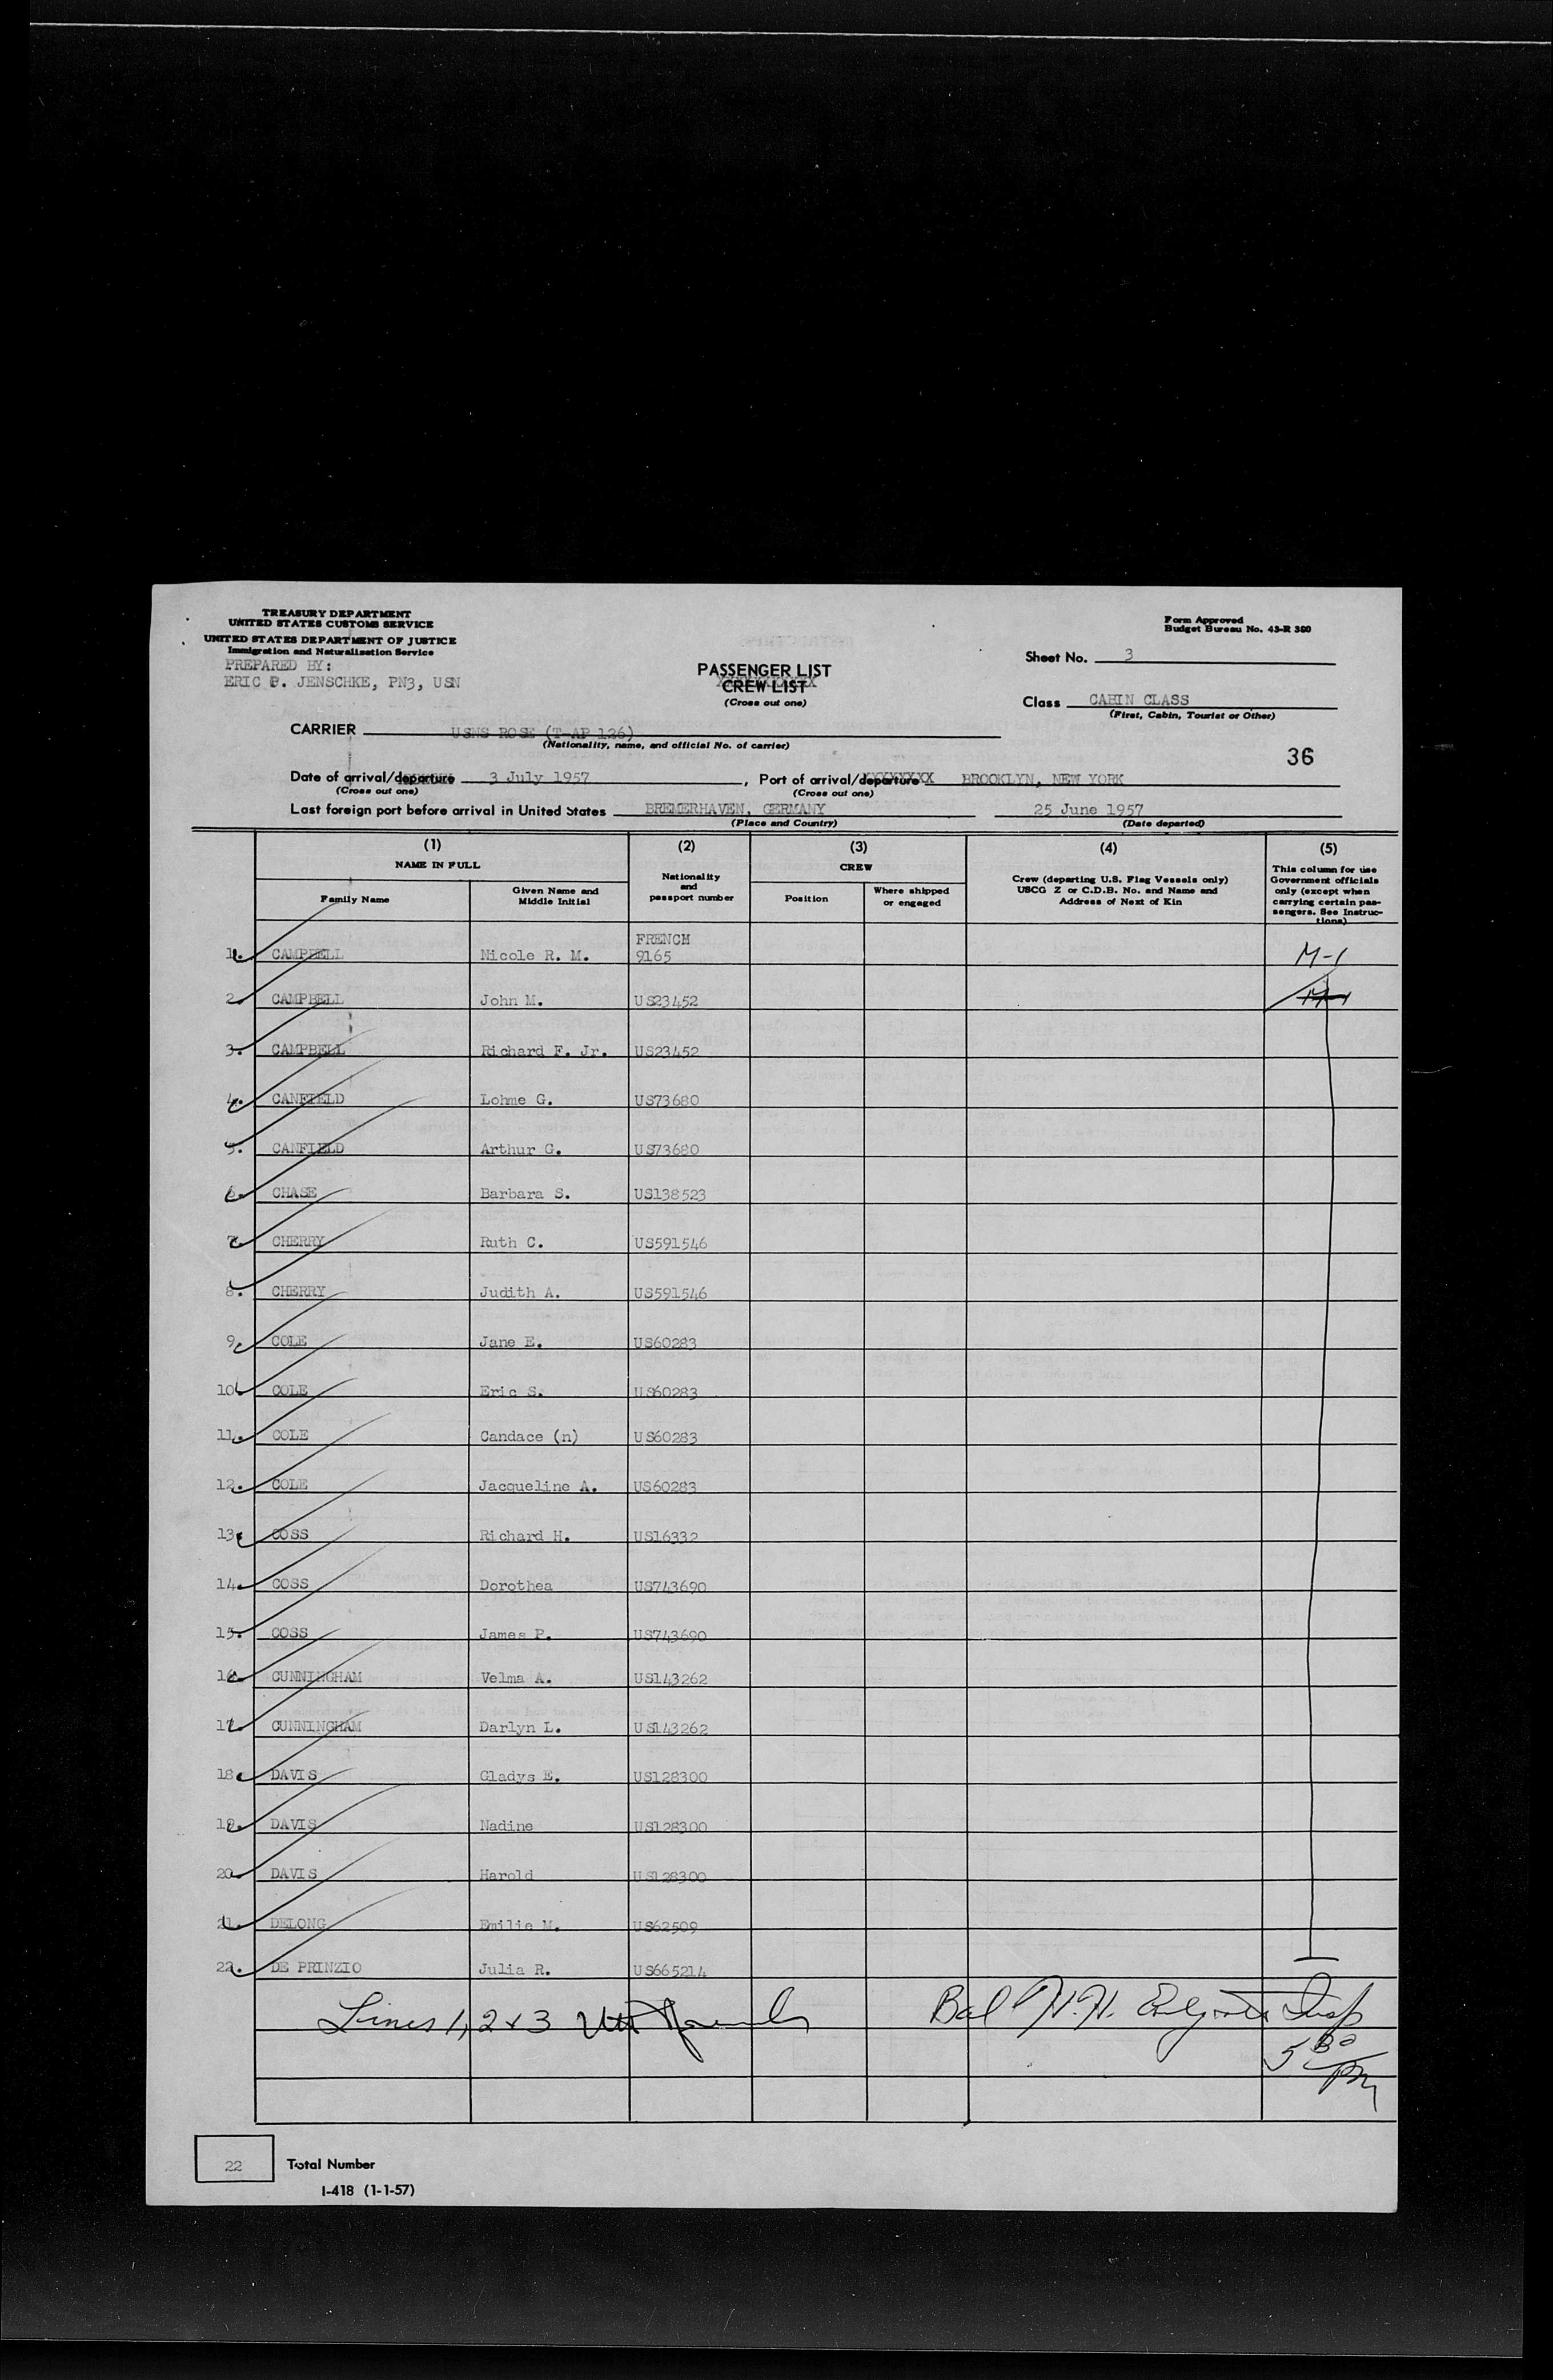 TREASURY DEPARTMENT
UNITED STATES CUSTOMS SERVICE
UNITED STATES DEPARTMENT OF JUSTICE
Immigration and Naturalization Service
PREPARED BY:
ERIC P. JENSCHKE, PN3, USN
Form Approved
Budget Bureau No. 43-R 380
Sheet No. 3
PASSENGER LIST
CREW LIST
(Cross out one)
Class CABIN CLASS
(First, Cabin, Tourist or Other)
CARRIER USNS ROSE (T-AP 126)
(Nationality, name, and official No. of carrier)
36
Date of arrival/departure 3 July 1957, Port of arrival/departure BROOKLYN, NEW YORK
(Cross out one) (Cross out one)
Last foreign port before arrival in United States BREMERHAVEN, GERMANY 25 June 1957
(Place and Country) (Date departed)
(1) (2) (3) (4) (5)
NAME IN FULL
Family Name
Given Name and Middle Initial
Nationality and passport number
CREW
Position
Where shipped or engaged
Crew (departing U.S. Flag Vessels only) USCG Z or C.D.B. No. and Name and Address of Next of Kin
This column for use Government officials only (except when carrying certain passengers. See Instructions)
1. CAMPBELL Nicole R. M. FRENCH 9165 M-1
2. CAMPBELL John M. US23452
3. CAMPBELL Richard F. Jr. US23452
4. CANFIELD Lohme G. US73680
5. CANFIELD Arthur G. US73680
6. CHASE Barbara S. US138523
7. CHERRY Ruth C. US591546
8. CHERRY Judith A. US591546
9. COLE Jane E. US60283
10. COLE Eric S. US60283
11. COLE Candace (n) US60283
12. COLE Jacqueline A. US60283
13. COSS Richard H. US16332
14. COSS Dorothea US743690
15. COSS James P. US743690
16. CUNNINGHAM Velma A. US143262
17. CUNNINGHAM Darlyn L. US143262
18. DAVIS Gladys E. US128300
19. DAVIS Nadine US128300
20. DAVIS Harold US128300
21. DELONG Emilie M. US62509
22. DE PRINZIO Julia R. US665214
Lines 1, 2 + 3 Bal Insp
5 30 PM
22 Total Number
I-418 (1-1-57)